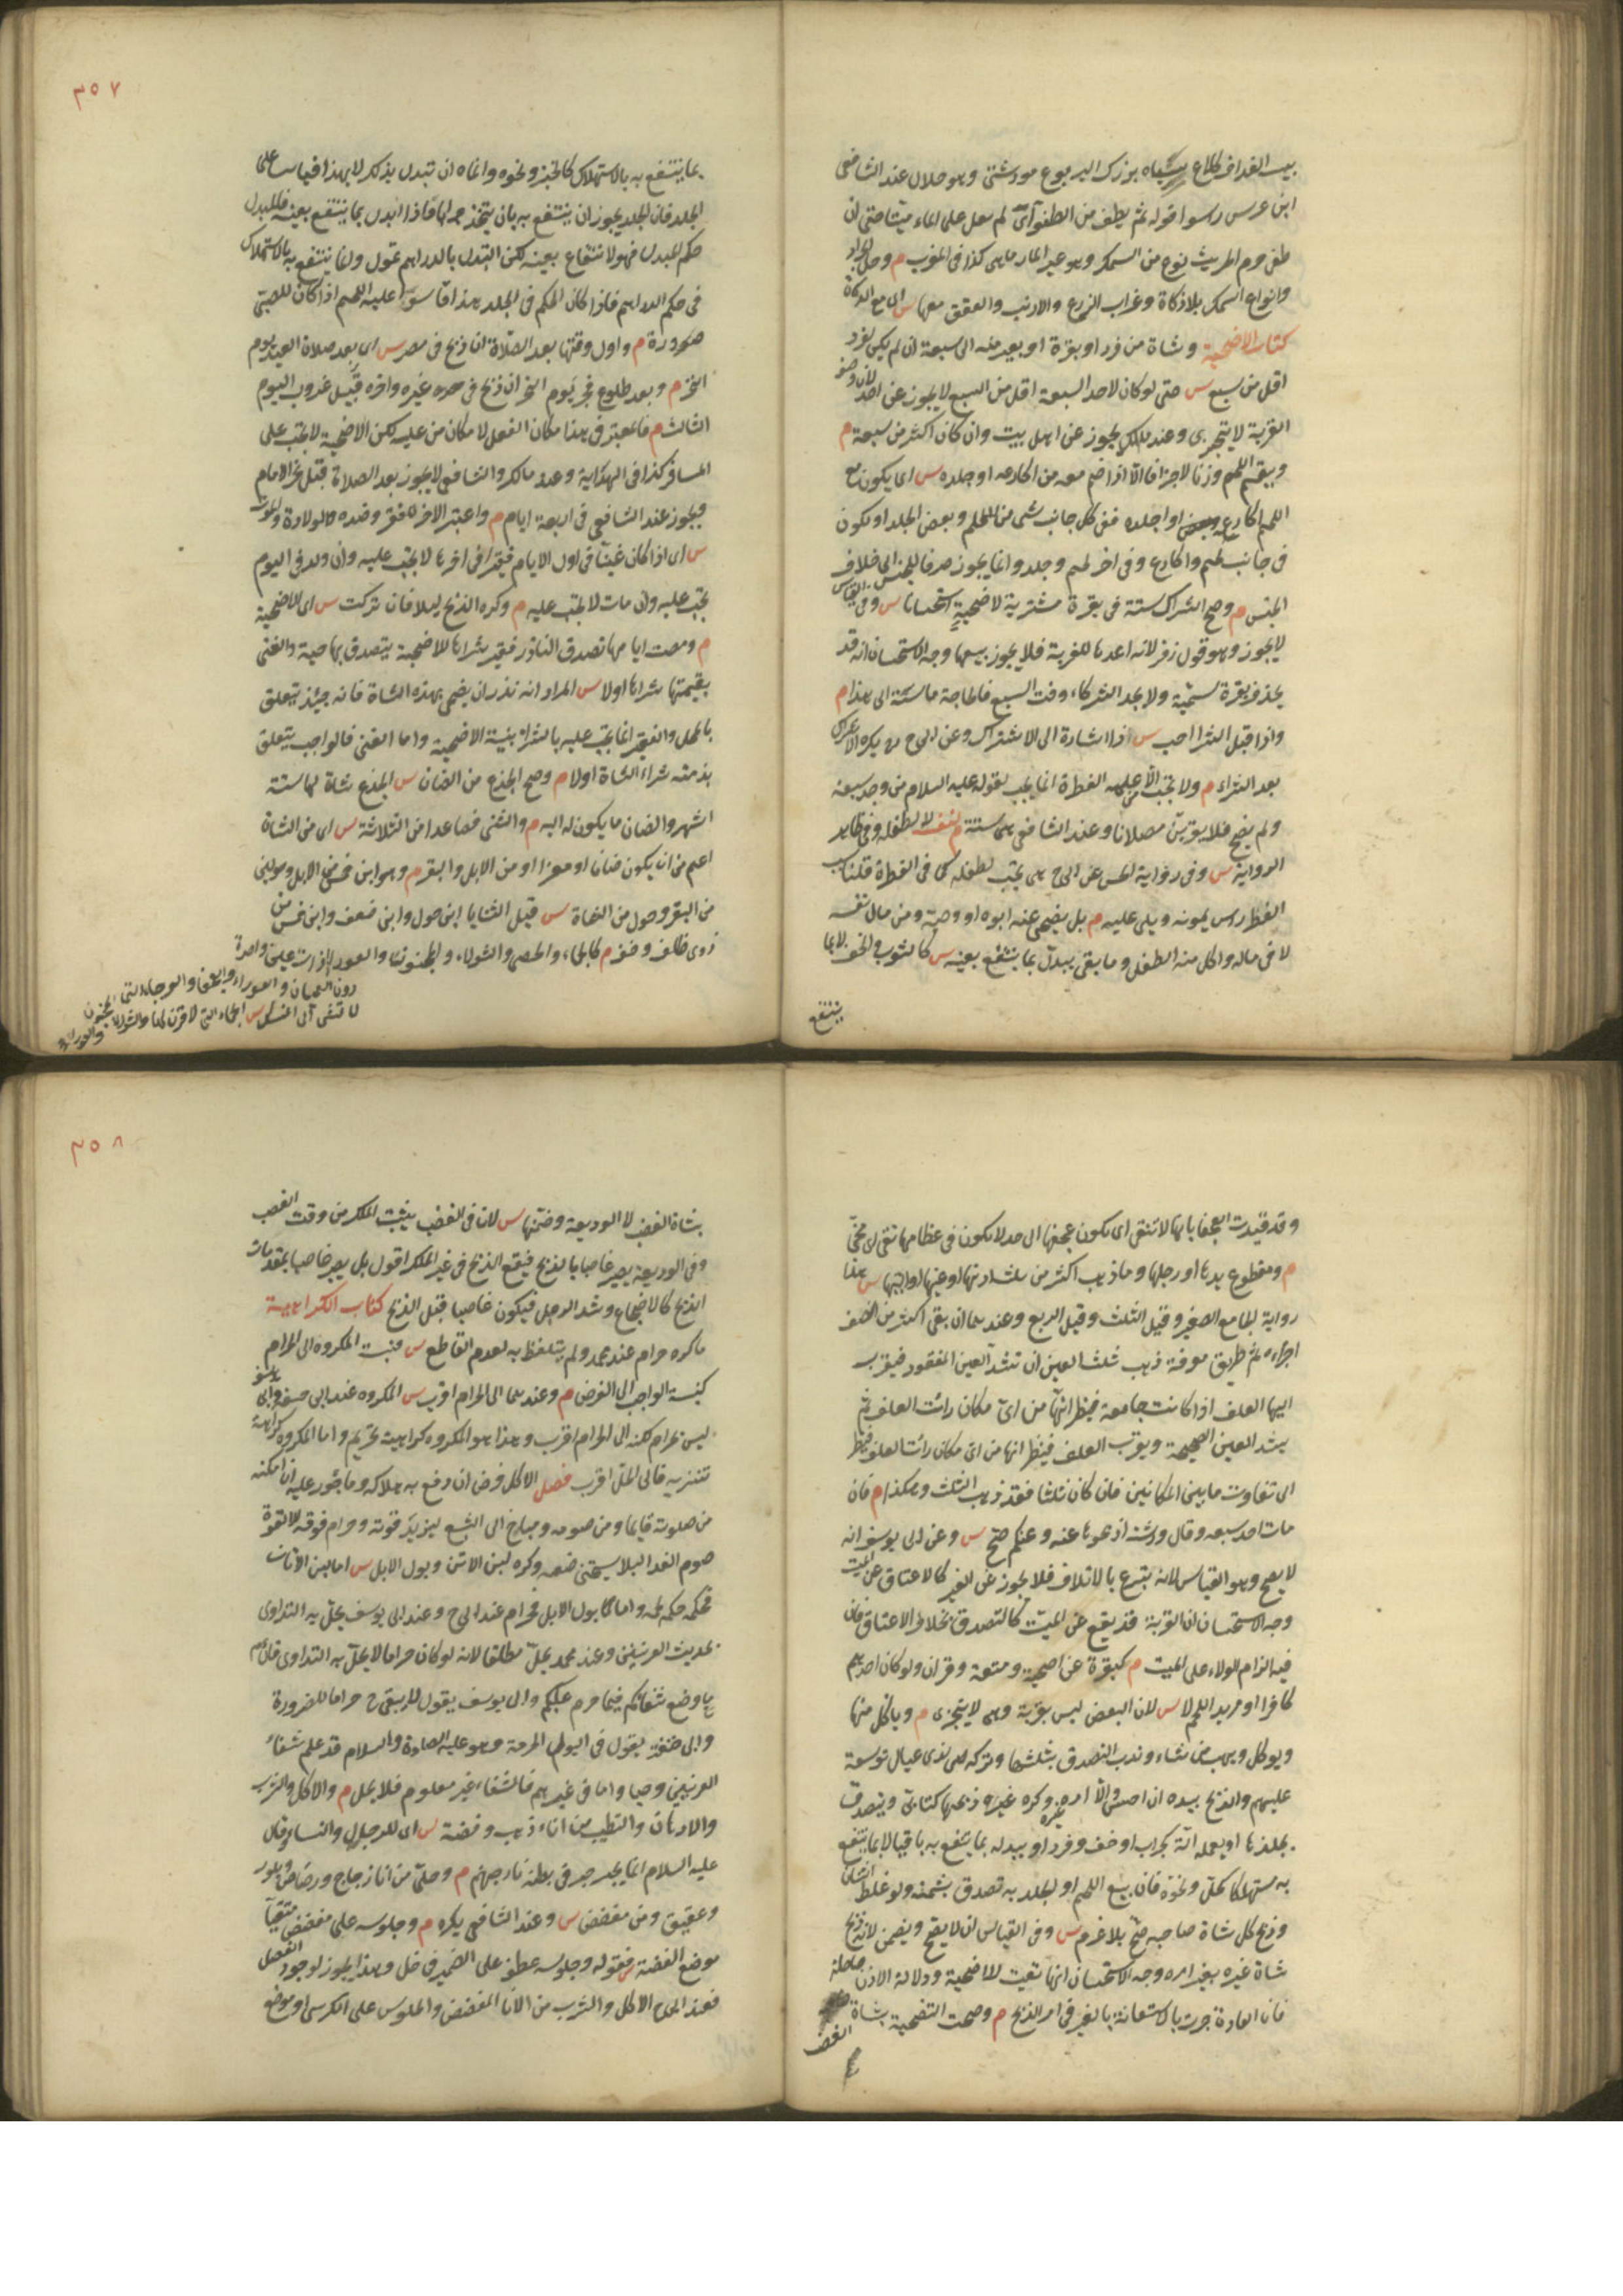 ابن عرس راسو قوله ثم يطف من الطفو اى لم يعل على الماء ميتا حتى ان
طفى حرم الجريث نوع من السمك وهو غير المارماهى كذا فى المغرب م وحل الجراد
وانواع السمك بلا ذكاة وغراب الزرع والارنب والعقعق معها س اى مع الذكاة
كتاب الاضحية وشاة من فرد او بقرة او بعير منه الى سبعة ان لم يكن لفرد
اقل من سبع س حتى لو كان لاحد السبعة اقل من السبع لا يجوز عن احد لان وصف
القربة لا يتجزى وعند مالك يجوز عن اهل بيت وان كان اكثر من سبعة م
ويقسم اللحم وزنا لا جزافا الا اذا ضم معه من اكارعه او جلده س اى يكون مع
اللحم اكارع او جلده ففى كل جانب شئ من اللحم وبعض الجلد او يكون
فى جانب لحم واكارع وفى اخر لحم وجلد وانما يجوز صرفا للجنس الى خلاف
الجنس م وصح اشراك ستة فى بقرة مشترية لاضحية استحسانا س وفى القياس
لا يجوز وهو قول زفر لانه اعدها للقربة فلا يجوز بيعها وجه الاستحسان انه قد
يجد بقرة سمينة ولا يجد الشركاء وقت البيع فالحاجة ماسة الى هذا م
وذا قبل الشرا احب س ذا اشارة الى الاشتراك وعن ابى ح انه يكره الاشتراك
بعد الشراء م ولا تجب الا على من عليه الفطرة انما يجب لقوله عليه السلام من وجد سعة
ولم يضح فلا يقربن مصلانا وعند الشافعى هى سنة م لنفسه لا لطفله وفى ظاهر
الرواية س وفى رواية الحسن عن ابى ح هى تجب لطفله كما فى الفطرة قلنا سبب
الفطر راس يمونه ويلى عليه م بل يضحى عنه ابوه او وصيه من مال نفسه
لا فى ماله واكل منه الطفل وما بقى يبدل بما ينتفع بعينه س كالثوب والخف لا بما
ينتفع
٣٥٧
بما ينتفع به بالاستهلاك كالخبز ونحوه وانما ان تبدل بذلك لا بهذا قياسا على
الجلد فان الجلد يجوز ان ينتفع به بان يتخذ جرابا فاذا ابدل بما ينتفع بعينه فللبدل
حكم المبدل فهو لانتفاع بعينه لكن التبدل بالدراهم تمول وما ينتفع به بالاستهلاك
فى حكم الدراهم فاذا كان الحكم فى الجلد هذا قاسوا عليه اللحم اذا كان للصبى
ضرورة م واول وقتها بعد الصلاة ان ذبح فى مصر س اى بعد صلاة العيد يوم
النحر م وبعد طلوع فجر يوم النحر ان ذبح فى غيره واخره قبيل غروب اليوم
الثالث م فالمعتبر فى هذا مكان الفعل لا مكان من عليه لكن الاضحية لا تجب على
المسافر كذا فى الهداية وعند مالك والشافعى لا يجوز بعد الصلاة قبل نحر الامام
ويجوز عند الشافعى فى اربعة ايام م واعتبر الاخر للفقر وضده والولادة والموت
س اى اذا كان غنيا فى اول الايام فقيرا فى اخرها لا تجب عليه وان ولد فى اليوم
تجب عليه وان مات لا تجب عليه م وكره الذبح ليلا فان تركت س اى الاضحية
م ومضت ايامها تصدق الناذر فقير شراها للاضحية يتصدق بها حية والغنى
بقيمتها شراها اولا س المراد انه نذر ان يضحى بهذه الشاة فانه حينئذ يتعلق
بالمحل والفقير انما تجب عليه بالشراء بنية الاضحية واما الغنى فالواجب يتعلق
بذمته شراء الشاة اولا م وصح الجذع من الضان س الجذع شاة لها ستة
اشهر والضان ما يكون له الية م والثنى فصاعدا من الثلاثة س اى من الشاة
اعم من ان يكون ضانا او معزا او من الابل والبقر م وهو ابن خمس من الابل وحولين
من البقر وحول من الشاة س قيل الثنايا ابن حول وابن ضعف وابن خمس من
ذوى ظلف وخف م كالجماء والخصى والثولاء
دون العمياء والعوراء والعجفاء والعرجاء التى
لا تمشى الى المنسك س الجماء التى لا قرن لها والثولاء المجنون
وقد قيدت العجفا بانها لا تنقى اى يكون عجفها الى حد لا يكون فى عظامها نقى اى مخ
م ومقطوع يدها او رجلها وما ذهب اكثر من ثلث اذنها او عينها او اليتها س هذا
رواية الجامع الصغير وقيل الثلث وقيل الربع وعندهما ان بقى اكثر من النصف
اجزاه ثم طريق معرفة ذهب ثلث العين ان تشد العين المفقود فيقرب
اليها العلف اذا كانت جائعة فينظر انها من اى مكان رات العلف ثم
يشد العين الصحيحة ويقرب العلف فينظر انها من اى مكان رات العلف فينظر
الى تفاوت ما بين المكانين فان كان ثلثا فقد ذهب الثلث وهكذا م فان
مات احد سبعة وقال ورثته اذبحوها عنه وعنكم صح س وعن ابى يوسف انه
لا يصح وهو القياس لانه يتبرع بالاتلاف فلا يجوز عن الغير كالاعتاق عن الميت
وجه الاستحسان ان القربة قد يقع عن الميت كالتصدق بخلاف الاعتاق فان
فيه الزام الولاء على الميت م كبقرة عن اضحية ومتعة وقران ولو كان احدهم
كافرا او مريد اللحم لا س لان البعض ليس بقربة وهى لا يتجزى م وياكل منها
ويوكل ويهب من شاء وندب التصدق بثلثها وتركه لذى عيال توسعة
عليهم والذبح بيده ان احسن والا امر غيره وكره ذبحها كتابى ويتصدق
بجلدها او يعمله الة كجراب او خف وفرو او يبدله بما ينتفع به باقيا لا بما ينتفع
به مستهلكا كخل ونحوه فان بيع اللحم او الجلد به تصدق بثمنه ولو غلط اثنان
وذبح كل شاة صاحبه صح بلا غرم س وفى القياس ان لا يصح ويضمن لانه ذبح
شاة غيره بغير امره وجه الاستحسان انها تعينت للاضحية ودلالة الاذن حاصلة
فان العادة جرت بالاستعانة بالغير فى امر الذبح م وصحت التضحية بشاة
الغصب
٣٥٨
بشاة الغصب لا الوديعة وضمنها س لان فى الغصب يثبت الملك من وقت الغصب
وفى الوديعة يصير غاصبا بالذبح فيقع الذبح فى غير الملك اقول بل يصير غاصبا بمقدمات
الذبح كالاضجاع وشد الرجل فيكون غاصبا قبل الذبح كتاب الكراهية
ما كره حرام عند محمد ولم يتلفظ به لعدم القاطع س فنسبة المكروه الى الحرام
كنسبة الواجب الى الفرض م وعندهما الى الحرام اقرب س المكروه عند ابى حنيفة وابى يوسف
ليس بحرام لكنه الى الحرام اقرب وهذا هو المكروه كراهية تحريم واما المكروه كراهة
تنزيه فالى الحل اقرب فصل الاكل فرض ان دفع به هلاكه وماجور عليه ان امكنه
من صلوته قائما ومن صومه ومباح الى الشبع ليزيد قوته وحرام فوقه الا لقوة
صوم الغد او لئلا يستحيى ضيفه وكره لبن الاتن وبول الابل س اما لبن الاتان
فحكمه حكم لحمه واما بول الابل فحرام عند ابى ح وعند ابى يوسف يحل به التداوى
لحديث العرنيين وعند محمد يحل مطلقا لانه لو كان حراما لا يحل به التداوى قال م
ما وضع شفائكم فيما حرم عليكم وابى يوسف يقول لا يبقى ح حراما للضرورة
وابى حنيفة يقول فى البول الحرمة وهو عليه الصلوة والسلام قد علم شفاء
العرنيين وحيا واما فى غيرهم فالشفاء غير معلوم فلا يحل م والاكل والشرب
والادهان والتطيب من اناء ذهب وفضة س اى للرجال والنساء وقال
عليه السلام انما يجرجر فى بطنه نار جهنم م وحل من اناء زجاج ورصاص وبلور
وعقيق ومن مفضض س وعند الشافعى يكره م وجلوسه على مفضض متقيا
موضع الفضة س فقوله وجلوسه عطف على الضمير فى حل وهذا يجوز لوجود الفصل
فعند ابى ح الاكل والشرب من الانا المفضض والجلوس على الكرسى او موضع